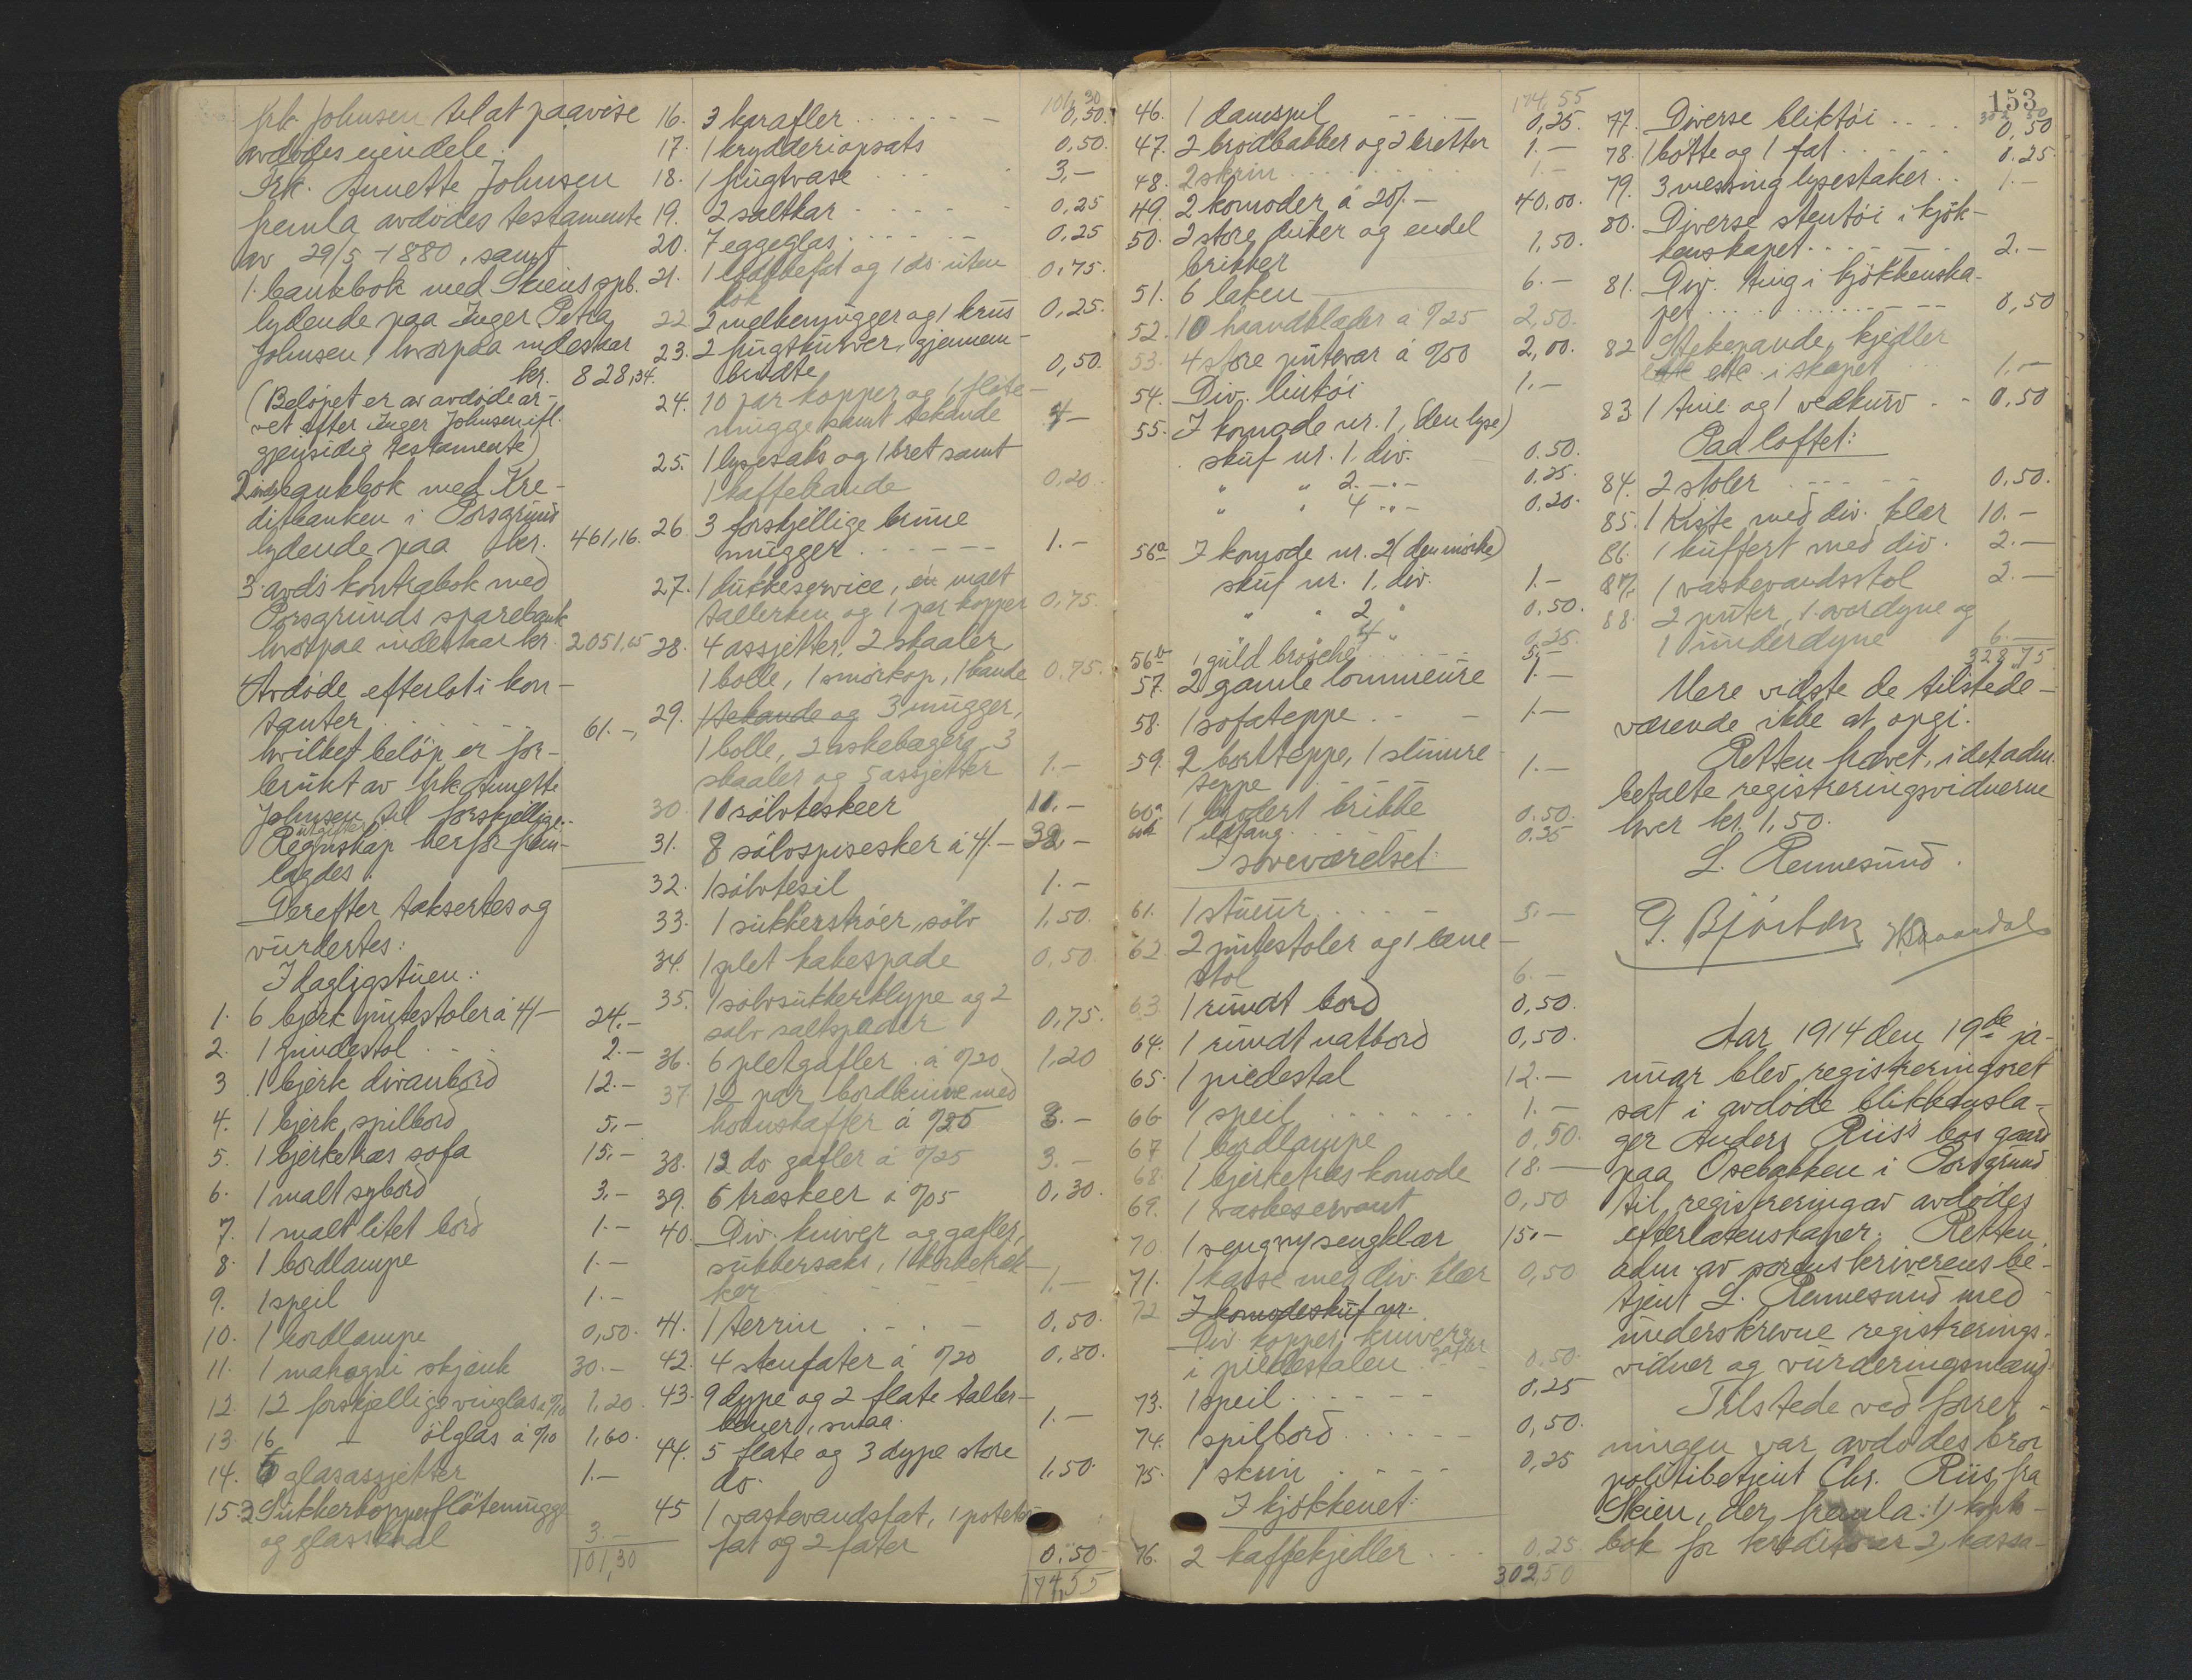 frk. Johnsen til at paavise
avdødes eiendele.
Frk. Annette Johnsen
fremla avdødes testamente
av 29/5-1880, samt
1. bankbok med Skiens spb.
lydende paa Inger Petra
Johnsen, hvorpaa indestaar
kr. 828,34.
(Beløpet er av avdøde ar-
vet efter Inger Johnsen ifl.
gjensidig testamente)
2 bankbok med Kre-
ditbanken i Porsgrund
lydende paa kr. 461,16.
3. avd's kontrabok med
Porsgrunds sparebank
hvorpaa indestaar kr. 2051,65
Avdøde efterlot i kon-
tanter 61.-,
hvilket beløp er for-
brukt av frk. Annette
Johnsen til forskjellige
utgifter
Regnskap herfor frem-
lagdes.
Derefter taksertes og
vurdertes:
I dagligstuen:
1. 6 bjerk putestoler á 4/- 24.-
2. 1 pindestol 2.-
3 1 bjerk divanbord 12.-
4. 1 bjerk spilbord 5.-
5. 1 bjerketræs sofa 15.-
6. 1 malt sybord 3.-
7. 1 malt litet bord 1.-
8. 1 bordlampe 1.-
9. 1 speil 1.-
10. 1 bordlampe 0,50.
11. 1 mahogni skjænk 30.-
12. 12 forskjellige vinglas á 0/10 1,20.
13. 16 - ølglas á 0/10 1,60.
14. 6 glasassjetter 1.-
15. 2 Sukkerkopper, fløtemugge
og glasskaal 3.-
101,30
101,30
16. 3 karafler 0,50.
17. 1 krydderiopsats 0,50.
18. 1 frugtvase 3,-
19. 2 saltkar 0,25
20. 7 eggeglas 0,25
21. 1 fat og 1 do. uten
lok 0,75.
22 2 melkemugger og 1 krus 0,25.
23. 2 frugtkurver, gjennem-
brudte 0,50.
24. 10 par kopper og 1 fløte-
mugge samt tekande 4-
25. 1 lysesaks og 1 bret samt
1 kaffekande 0,20.
26. 3 forskjellige brune
mugger 1.-
27. 1 dukkeservice, én malt
tallerken og 1 par kopper 0,75.
28. 4 assjetter, 2 skaaler
1 bolle, 1 smørkop, 1 kande 0,75.
29. 1 tekande og 3 mugger,
1 bolle, 2 askebægere, 3
skaaler og 5 assjetter 1.-
30. 10 sølvteskeer 10.-
31. 8 sølvspiseskeer á 4/.- 32.-
32. 1 sølvtesil 1.-
33. 1 sukkerstrøer, sølv 1,50.
34. 1 plet kakespade 0,50.
35. 1 sølvsukkerklype og 2
sølv saltspader 0,75.
36. 6 pletgafler á 0/20 1,20
37. 12 par bordknive med
hornskafter á 0/25 3.-
38. 12 do gafler á 0/25 3.-
39. 6 træskeer á 0/05 0,30.
40. Div. kniver og gafler,
sukkersaks, 1 korketræk-
ker 1.-
41. 1 terrin 0,50.
42. 4 stenfater á 0/20 0,80.
43. 9 dype og 2 flate taller-
kener, smaa. 1.-
44. 5 flate og 3 dype store
do. 1,50.
45 1 vaskevandsfat, 1 potet-
fat og 2 fater 0,50
174,55
174,55
46. 1 damspil 0,25.
47. 2 brødbakker og 2 bretter 1.-
48. 2 skrin 1.-
49. 2 komoder á 20/.- 40,00.
50. 2 store duker og endel
brikker 1,50.
51. 6 laken 6.-
52. 10 haandklæder á 0/25 2,50.
53. 4 store putevar á 0/50 2,00.
54. Div. lintøi 1.-
55. I komode nr. 1, (den lyse)
skuf nr. 1. div. 0.50.
" " 2. -.- 0,25.
" " 4 -.- 0,20.
56a I komode nr. 2 (den mørke)
skuf nr. 1. div. 1.-
" " 2 " 0,50.
" " 4 " 0,25.
56b 1 guld brosche 5.-
57. 2 gamle lommeure 1.-
58. 1 sofateppe 1.-
59. 2 bordteppe, 1 stumre-
teppe 1.-
60a 1 brodert brikke 0.50.
60b 1 ildtang 0.25
I soveværelset:
61. 1 stueur 5.-
62. 2 putestoler og 1 læne-
stol 6.-
63 1 rundt bord 0,50.
64. 1 rundt natbord 0,50.
65. 1 piedestal 12.-
66 1 speil 1.-
67 1 bordlampe 0,50.
68. 1 bjerketræs komode 18.-
69. 1 vaskeservant 0,50
70. 1 seng m/ sengklær 15.-
71. 1 kasse med div. klær 0,50
72 I komodeskuf nr.
Div. kopper, kniver &
gafler
i piedestalen 0,50.
73. 1 speil 0,25
74. 1 spilbord 0,50.
75. 1 skrin 0,25
I kjøkkenet:
76. 2 kaffekjedler 0,25.
302,50
153
302,50
77. Diverse bliktøi 0,50
78. 1 bøtte og 1 fat 0.25
79. 3 messing lysestaker 1.-
80. Diverse stentøi i kjøk-
kenskapet 2.-
81. Div. ting i kjøkkenska-
pet 0,50
82 Stekepande, kjedler
etc. i skapet 1.-
83 1 tine og 1 vedkurv 0,50
Paa loftet:
84. 2 stoler 0,50.
85. 1 kiste med div. klær 10.-
86. 1 kuffert med div. 2.-
87. 1 vaskevandsstol 2.-
88. 2 puter, 1 overdyne og
1 underdyne 6.-
328,75
Mere vidste de tilstede-
værende ikke at opgi.
Retten hævet, idet adm.
betalte registreringsvidnerne
hver kr. 1,50.
L. Rennesund.
Aar 1914 den 19de ja-
nuar blev registreringsret
sat i avdøde blikkensla-
ger Anders Riis's bos gaard
paa Osebakken i Porsgrund
til registrering av avdødes
efterlatenskaper. Retten
adm. av sorenskriverens be-
tjent L. Rennesund med
underskrevne registrerings-
vidner og vurderingsmænd.
Tilstede ved forret-
ningen var avdødes bror
politibetjent Chr. Riis fra
Skien, der fremla: 1) kopi-
bok for kreditorer 2) kassa-